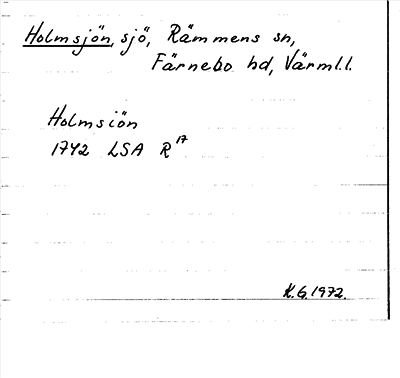 Holmsjön, sjö, Rämmens sn,
Färnebo hd, Värml.l.
Holmsiön
1742 LSA R 17
K.G. 1972.